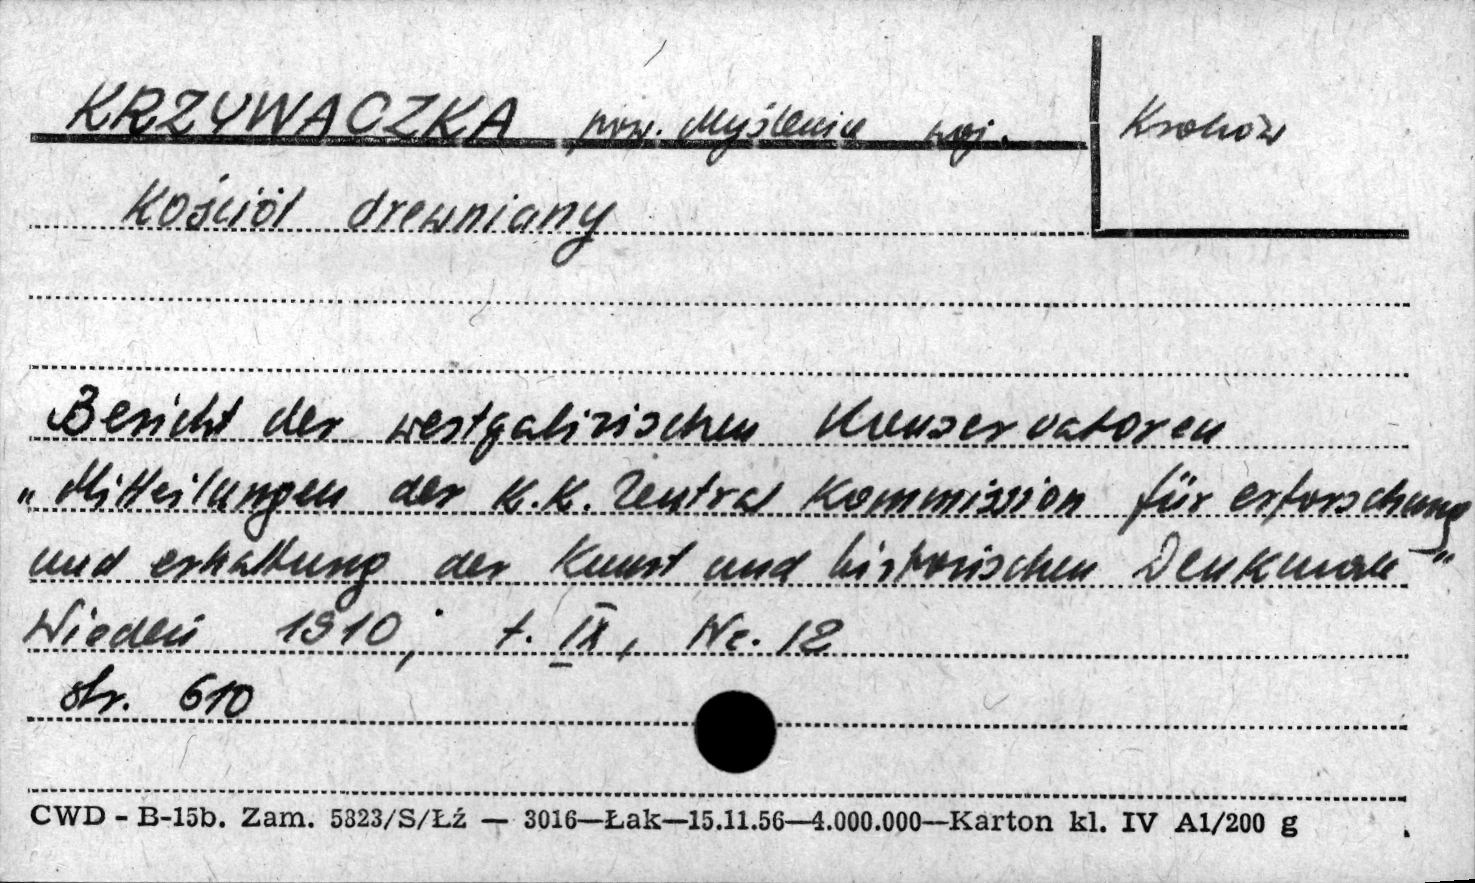 KRZYWACZKA pow. Myślenice woj. Kraków
Kościół drewniany
Bericht der westgalizischen Konservatoren
"Mitteilungen der K.K. Zentral Kommission für erforschung
und erhaltung der Kunst und historischen Denkmale"
Wiedeń 1910; t. IX, Nr. 12
str. 610
CWD - B-15b. Zam. 5823/S/Łź — 3016—Łak—15.11.56—4.000.000—Karton kl. IV A1/200 g